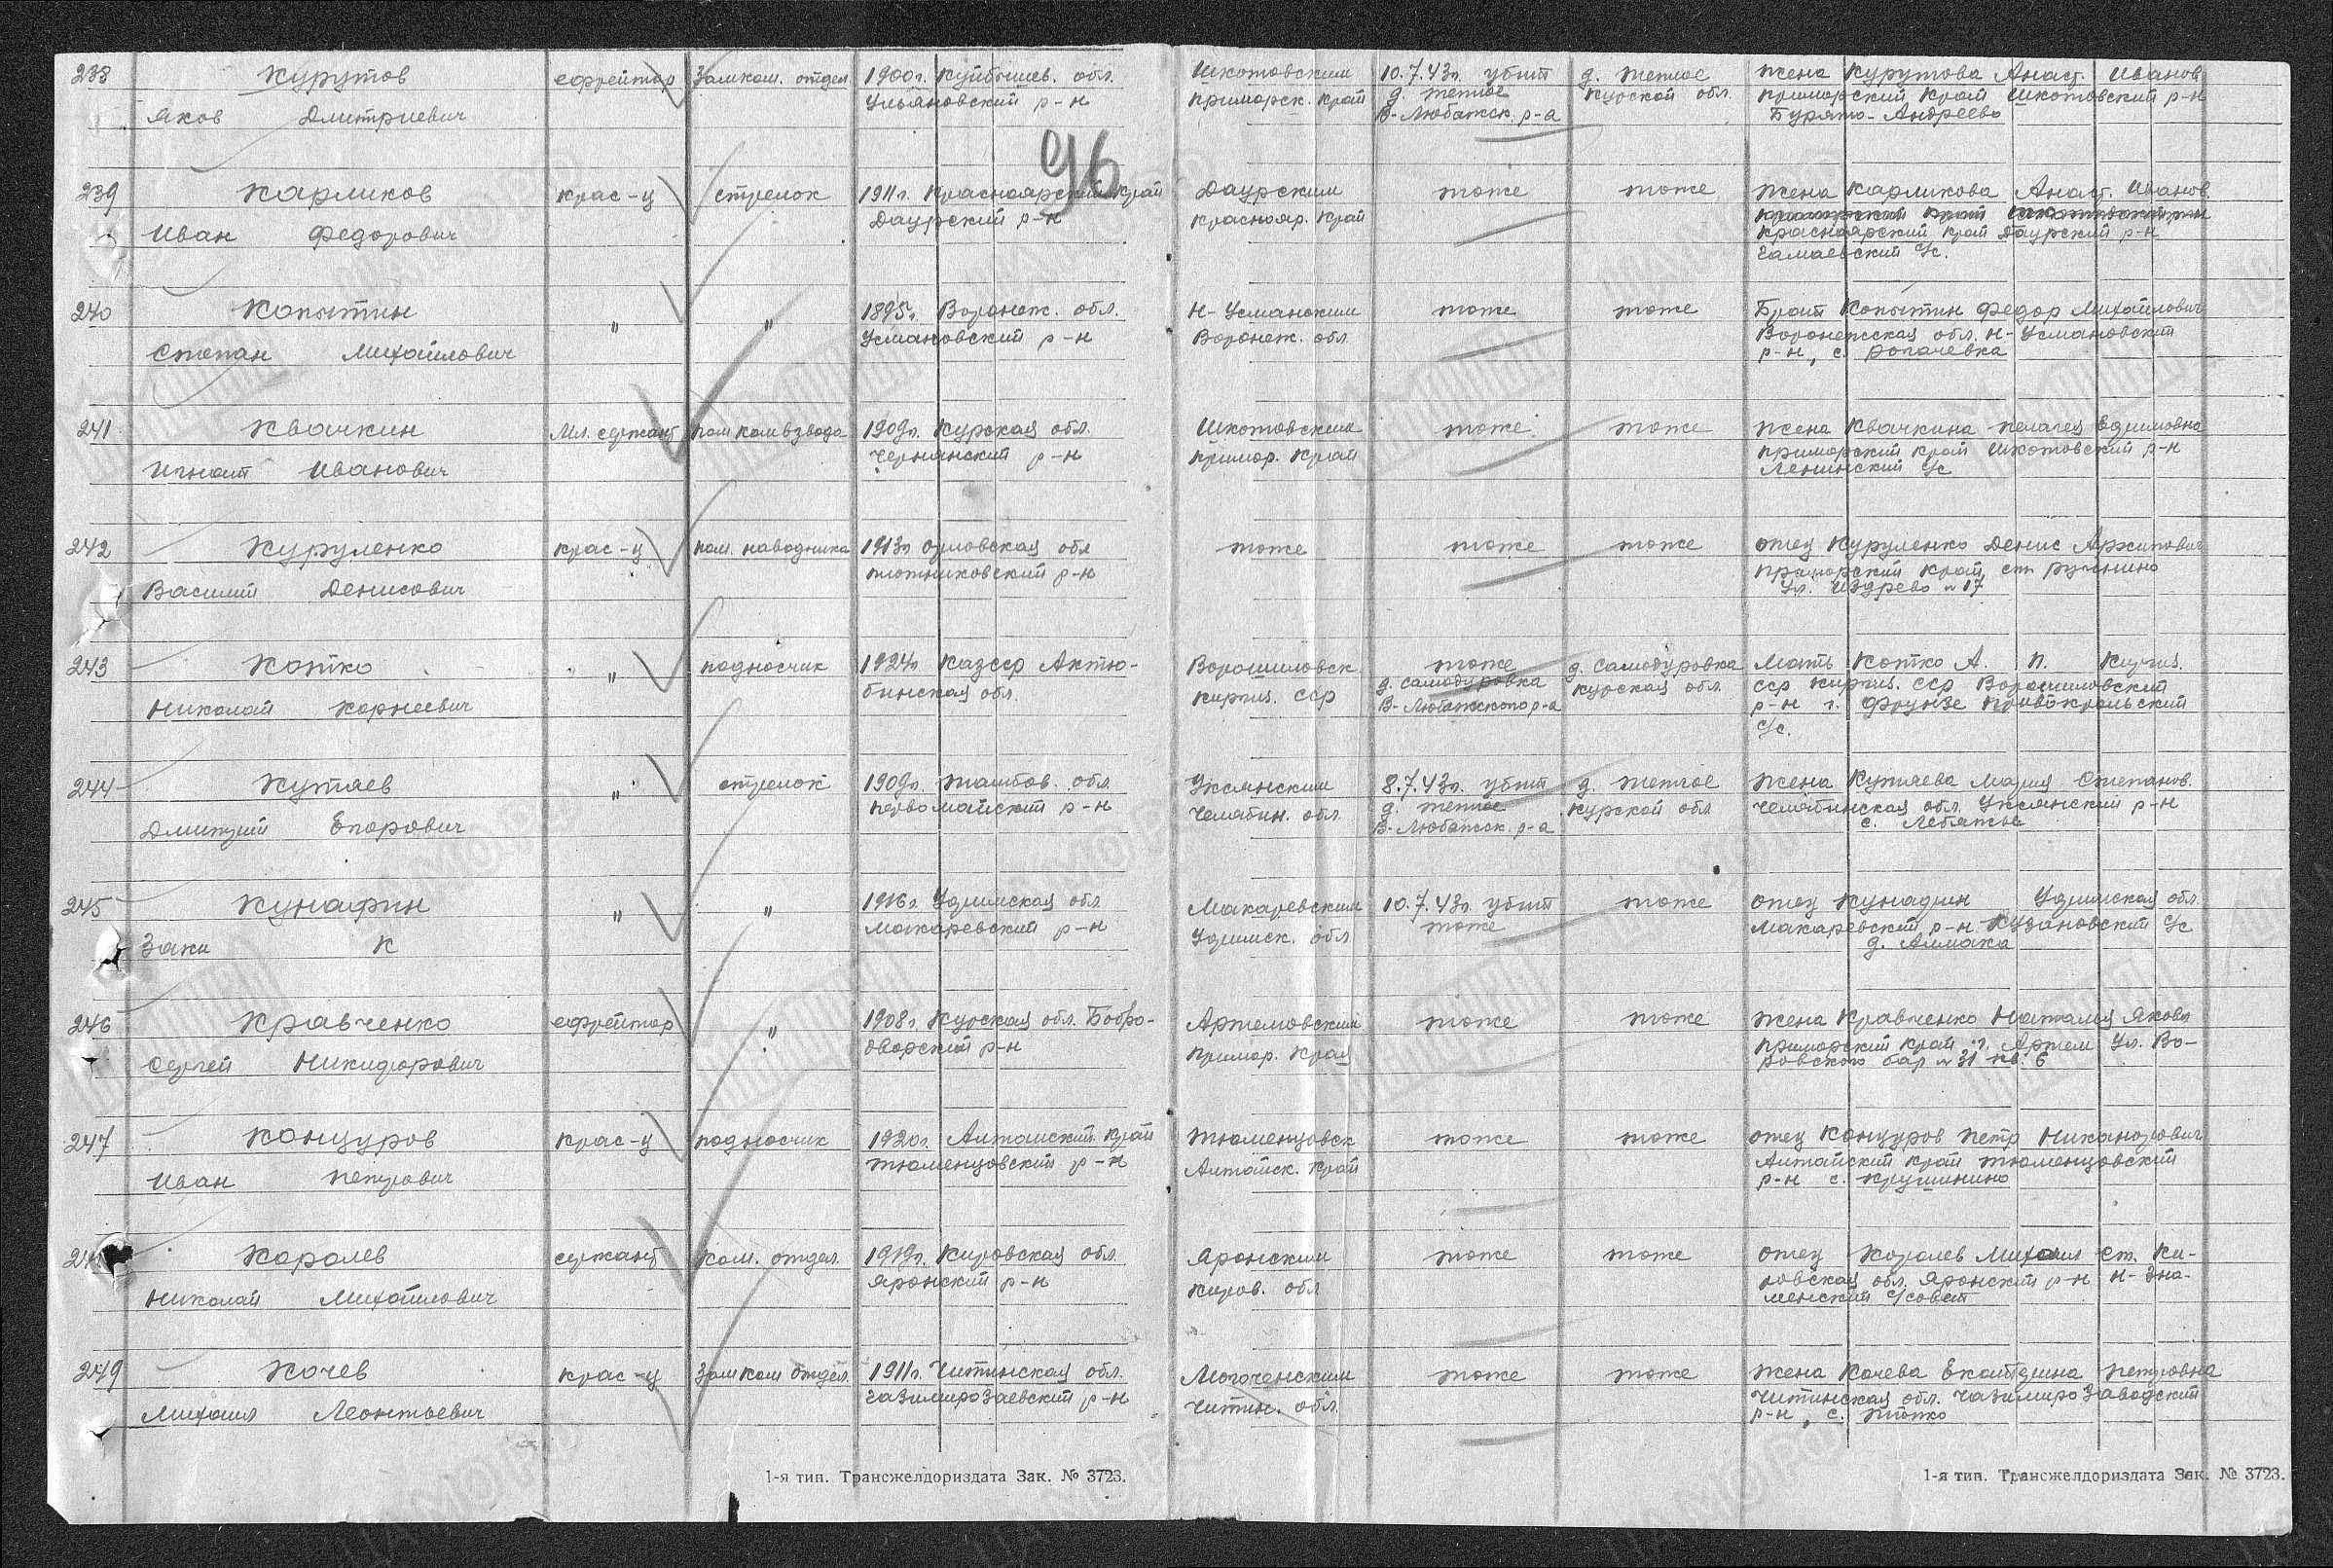 96
238 Курутов ефрейтор Замком. отдел 1900г. Куйбышев. обл. Шкотовским 10.7.43г. убит д. Теплое жена Курутова Анаст. Иванов
Яков Дмитриевич Ульяновский р-н Приморск. край д. Теплое В-Любажск. р-а Курской обл. Приморский край Шкотовский р-н
Андреево
239 Карликов крас-ц стрелок 1911г. Красноярский край Даурским тоже тоже жена Карликова Анаст. Иванов.
Иван Федорович Даурский р-н Краснояр. край
Красноярский край Даурский р-н
с/с.
240 Копытин " " 1895г. Воронеж. обл. Н-Усманским тоже тоже Брат Копытин Федор Михайлович
Степан Михайлович Усмановский р-н Воронеж. обл Воронежская обл. Н-Усмановский
р-н, с. Рогачевка
241 Квачкин Мл. сержант пом комвзвода 1909г. Курская обл. Шкотовским тоже тоже жена Квачкина Пелагея Ефимовна
Игнат Иванович Чернянский р-н Примор. край Приморский край Шкотовский р-н
Ленинский с/с
242 Куруленко крас-ц пом. наводчика 1913г Орловская обл тоже тоже тоже отец Куруленко Денис Архипович
Василий Денисович р-н Приморский край, ст
ул. №17
243 Котко " подносчик 1924г. КазССР Актю- Ворошиловск тоже д. Самодуровка Мать Котко А. П. Киргиз.
Николай Корнеевич бинская обл. Киргиз. ССР д. Самодуровка В-Любажского р-а Курская обл. ССР Киргиз. ССР Ворошиловский
р-н г. Фрунзе
с/с.
244 Кутяев " стрелок 1909г. Тамбов. обл. Уксянским 8.7.43г. убит д. Теплое жена Кутяева Мария Степанов.
Дмитрий Егорович Первомайский р-н Челябин. обл д. Теплое В-Любажск. р-а Курской обл Челябинская обл. Уксянский р-н
с. Лебяжье
245 Кунафин " " 1916г. Уфимская обл Макаревским 10.7.43г. убит тоже отец Кунафин Уфимская обл.
Заки К Макаревский р-н Уфимск. обл тоже Макаревский р-н с/с
д.
246 Кравченко ефрейтор " 1908г. Курская обл. Бобро- Артемовским тоже тоже жена Кравченко Наталия Яковл
Сергей Никифорович дворский р-н Примор. край Приморский край г. Артем ул. Во-
ровского бар №31 кв. 6
247 Канцуров крас-ц подносчик 1920г. Алтайский край Тюменцовск тоже тоже отец Канцуров Петр Никанорович
Иван Петрович Тюменцовский р-н Алтайск. край Алтайский край Тюменцовский
р-н с. Крушинино
Королев сержант Ком. отдел. 1919г. Кировская обл. Яранским тоже тоже отец Королев Михаил Ст. Ки-
Николай Михайлович Яранский р-н Киров. обл ровская обл. Яранский р-н Н-Зна-
менский с/совет
249 Качев крас-ц Замком отдел. 1911г. Читинская обл. Могоченским тоже тоже жена Качева Екатерина Петровна
Михаил Леонтьевич р-н Читин. обл. Читинская обл.
р-н, с.
1-я тип. Трансжелдориздата Зак. № 3723. 1-я тип. Трансжелдориздата Зак. № 3723.